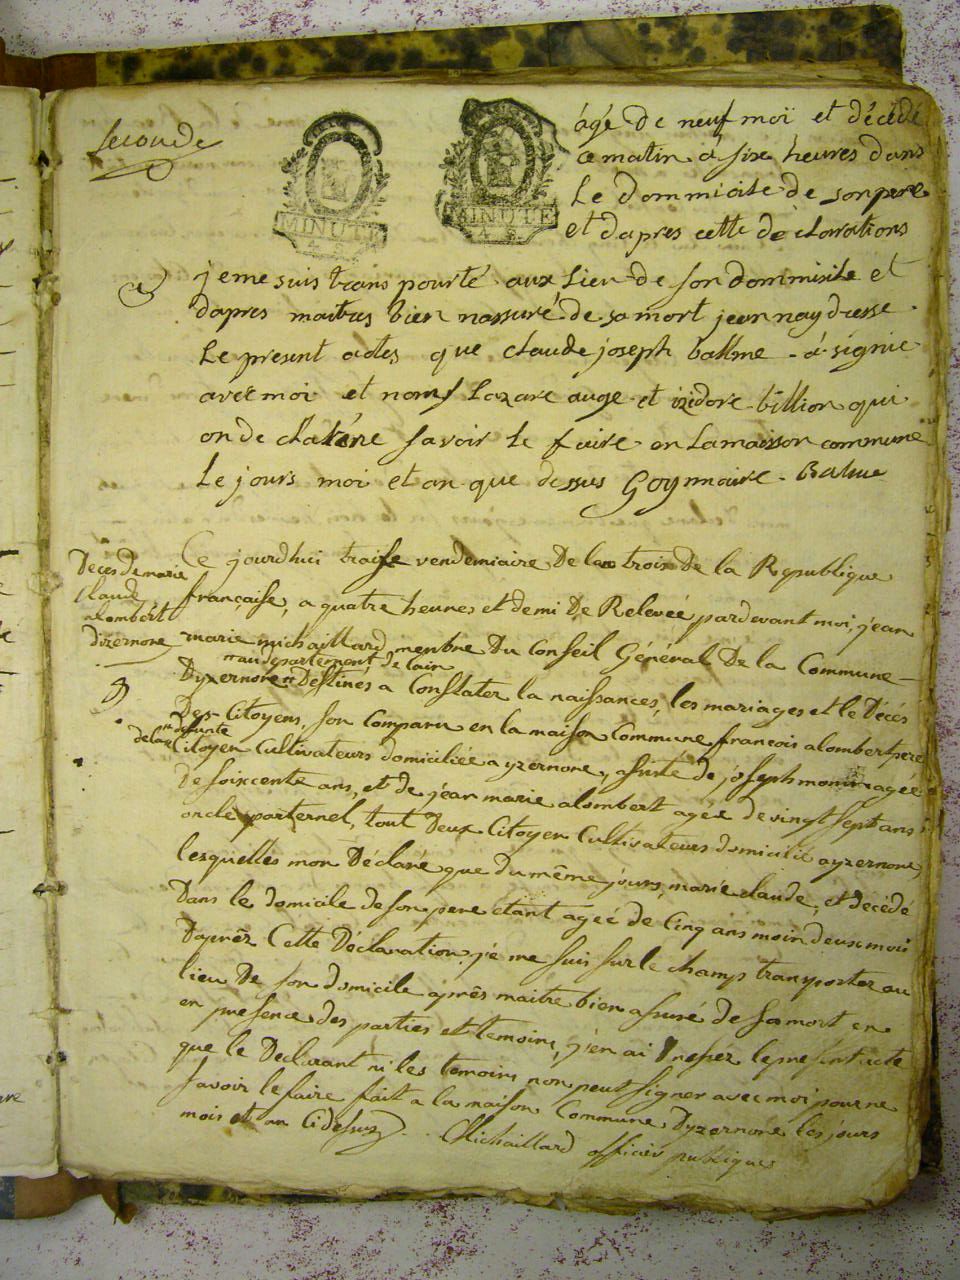 seconde
MINUTE
4 S.
MINUTE
4 S.
âgé de neuf moi et décédé
ce matin à six heures dans
Le dommicile de son pere
et dapres cette déclarations
je me suis trans pourté aux Lieu de son dommisile et
dapres maitres bien nassuré de sa mort jean nay dresse
Le present actes que claude joseph ballme à signie
avec moi et nom Lazare auge et izidore billion qui
on de claréne savoir le faire en La maisson commune
Le jours moi et an que dessus Goy maire Balme
Deces de marie
Claude
alombert
dizernore
Ce jourdhui traise vendemiaire De lan trois De la Republique
française, a quatre heures et demi De Relevée pardevant moi, jean
marie michaillard menbre Du Conseil Général De la Commune
au departement de lain
Dyzernore Destines a Constater la naissances, les mariages et le Décés
Des Citoyens, son Comparu en la maison Commune francois alombert pere
de la defunte
Citoyen Cultivateurs domiciliée a yzernore, assisté de joseph monin agée
de soixcente ans, et de jean marie alombert agée de vingt sept ans
oncle paternel, tout Deux Citoyen Cultivateurs domicilié a yzernore
lesquelles mon Déclaré que du même jours, marie claude, et décédé
Dans le domicile de son pere etant agée de Cinq ans moin deux mois
Daprèz Cette Déclaration, je me suis sur le champs transporter au
lieu De son domicile après maitre bien assuré de sa mort en
en presence des parties et temoins, j'en ai Dressez le present acte
que le Declarant ni les temoins non peut signer avec moi pour ne
savoir le faire fait a la maison Commune Dyzernore les jours
mois et an Cidessus Michaillard officier publique